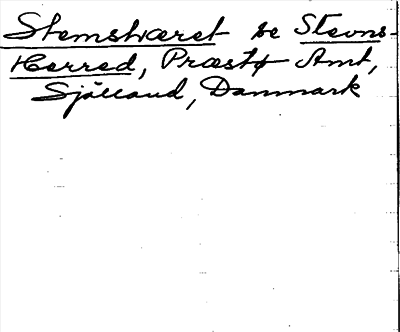 Stemshæret se Stevns-
Herred, Præstø Amt,
Sjælland, Danmark